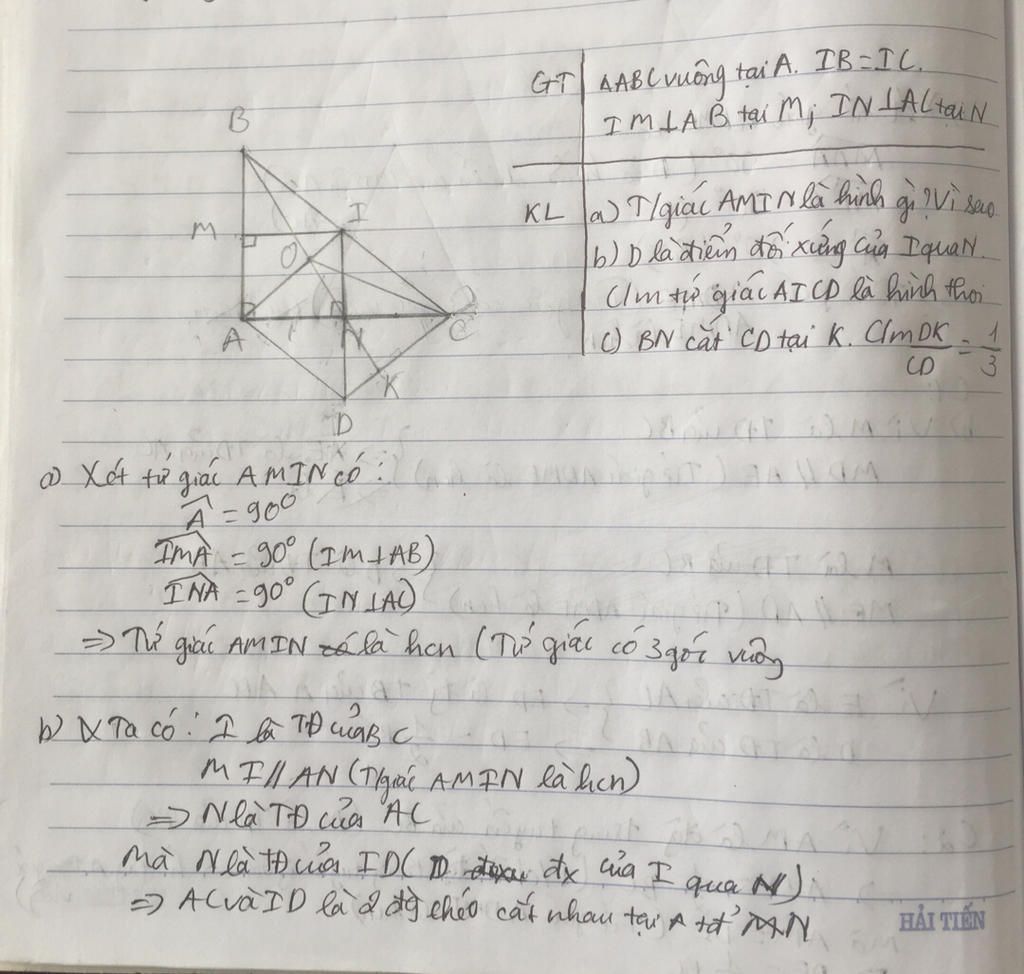 GT | ΔABC vuông tại A. IB = IC.
IM⊥AB tại M; IN⊥AC tại N
KL | a) T/giác AMIN là hình gì? Vì sao
b) D là điểm đối xứng của I qua N.
C/m tứ giác AICD là hình thoi
c) BN cắt CD tại K. C/m DK/CD = 1/3
B
M
I
O
A
N
C
K
D
a) Xét tứ giác AMIN có:
Â = 90°
IMA = 90° (IM⊥AB)
INA = 90° (IN⊥AC)
=> Tứ giác AMIN là hcn (Tứ giác có 3 góc vuông
b) Ta có: I là TĐ của BC
MI // AN (T/giác AMIN là hcn)
=> N là TĐ của AC
Mà N là TĐ của ID (D đx của I qua N)
=> AC và ID là 2 đg chéo cắt nhau tại N
HẢI TIẾN